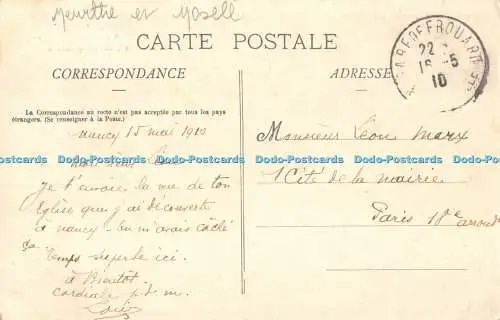 Meurthe et Mosell
CARTE POSTALE
CORRESPONDANCE
ADRESSE
GARE DE FROUARD
22
16 - 5
10
La Correspondance au recto n'est pas acceptée par tous les pays
étrangers. (Se renseigner à la Poste.)
Nancy 15 mai 1910
Mon vieux
je t'envoie la vue de ton
Eglise que j'ai découverte
à Nancy - tu m'avais caché
ça
Temps superbe ici.
à Bientôt
Cordiale p.d.m.
Monsieur Léon Marx
1 Cité de la mairie
Paris 18e arrond
Dodo-Postcards Dodo-Postcards Dodo-Postcards Dodo-Postcards Dodo-Postcards